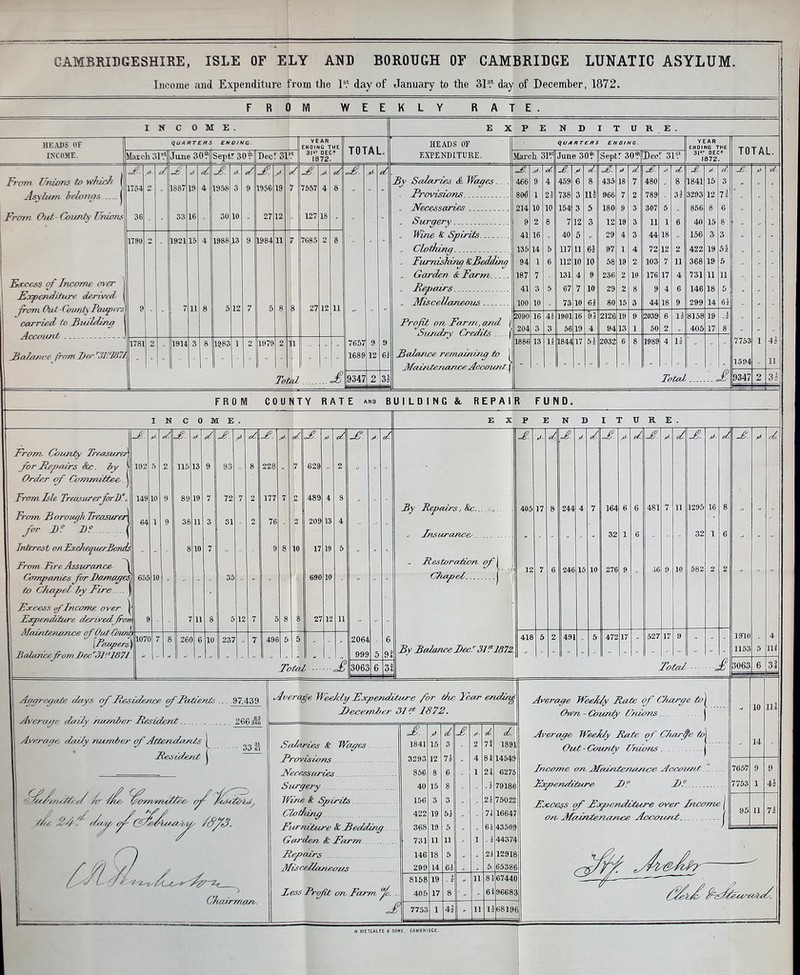 CAMBRIDGESHIRE, ISLE OF ELY AND BOROUGH OF CAMBRIDGE LUNATIC ASYLUM.
Income and Expenditure from the 1st day of January to the 31st day of December, 1872.
FROM WEEKLY RATE.
INCOME.
HEADS OF INCOME. QUARTERS ENDING. YEAR ENDING THE 31ST DECR 1872. TOTAL.
March 31st June 30th Septr 30th Decr 31st
£ s d £ s d £ s d £ s d £ s d £ s d
From Unions to which Asylum belongs 1754 2 . 1887 19 4 1958 3 9 1956 19 7 7557 4 8
From Out-County Unions 36 . . 33 16 . 30 10 . 27 12 . 127 18 .
1790 2 . 1921 15 4 1988 13 9 1984 11 7 7685 2 8
Excess of Income over Expenditure derived from Out-County Paupers carried to Building Account 9 . . 7 11 8 5 12 7 5 8 8 27 12 11
1781 2 . 1914 3 8 1983 1 2 1979 2 11 7657 9 9
Balance from Decr 31st 1871 1689 12 6½
Total £ 9347 2 3½
EXPENDITURE.
HEADS OF EXPENDITURE. QUARTERS ENDING. YEAR ENDING THE 31ST DECR 1872. TOTAL.
March 31st June 30th Septr 30th Decr 31st
£ s d £ s d £ s d £ s d £ s d £ s d
By Salaries & Wages 466 9 4 459 6 8 435 18 7 480 . 8 1841 15 3
" Provisions 800 1 2½ 738 3 11½ 966 7 2 789 . 3½ 3293 12 7½
" Necessaries 214 10 10 154 3 5 180 9 3 307 5 . 856 8 6
" Surgery 9 2 8 7 12 3 12 19 3 11 1 6 40 15 8
" Wine & Spirits 41 16 . 40 5 . 29 4 3 44 18 . 156 3 3
" Clothing 135 14 5 117 11 6½ 97 1 4 72 12 2 422 19 5½
" Furnishing & Bedding 94 1 6 112 10 10 58 19 2 103 7 11 368 19 5
" Garden & Farm 187 7 . 131 4 9 236 2 10 176 17 4 731 11 11
" Repairs 41 3 5 67 7 10 29 2 8 9 4 6 146 18 5
" Miscellaneous 100 10 . 73 10 6½ 80 15 3 44 18 9 299 14 6½
2090 16 4½ 1901 16 9½ 2126 19 9 2039 6 1½ 8158 19 .½
Profit on Farm, and Sundry Credits 204 3 3 56 19 4 94 13 1 50 2 . 405 17 8
1886 13 1½ 1844 17 5½ 2032 6 8 1989 4 1½ 7753 1 4½
Balance remaining to Maintenance Account 1594 . 11
Total £ 9347 2 3½
FROM COUNTY RATE AND BUILDING & REPAIR FUND.
INCOME.
£ s d £ s d £ s d £ s d £ s d £ s d
From County Treasurer for Repairs &c. by Order of Committee 192 5 2 115 13 9 93 . 8 228 . 7 629 . 2
From Isle Treasurer for Do. 149 10 9 89 19 7 72 7 2 177 7 2 489 4 8
From Borough Treasurer for Do Do 64 1 9 38 11 3 31 . 2 76 . 2 209 13 4
Interest on Exchequer Bonds 8 10 7 9 8 10 17 19 5
From Fire Assurance Companies for Damages to Chapel by Fire 655 10 . 35 . . 690 10 .
Excess of Income over Expenditure derived from Maintenance of Out County Paupers 9 . . 7 11 8 5 12 7 5 8 8 27 12 11
1070 7 8 260 6 10 237 . 7 496 5 5 2064 . 6
Balance from Decr 31st 1871 999 5 9½
Total £ 3063 6 3½
EXPENDITURE.
£ s d £ s d £ s d £ s d £ s d £ s d
By Repairs, &c. 405 17 8 244 4 7 164 6 6 481 7 11 1295 16 8
" Insurance 32 1 6 32 1 6
" Restoration of Chapel 12 7 6 246 15 10 276 9 . 46 9 10 582 2 2
418 5 2 491 . 5 472 17 . 527 17 9 1910 . 4
By Balance Decr 31st 1872 1153 5 11½
Total £ 3063 6 3½
Aggregate days of Residence of Patients 97,439
Average daily number Resident 266
Average daily number of Attendants Resident 33
Submitted to the Committee of Visitors, this 24th day of February 1873.
Chairman.
Average Weekly Expenditure for the Year ending December 31st 1872.
£ s d £ s d d
Salaries & Wages 1841 15 3 . 2 7½ 1891
Provisions 3293 12 7½ . 4 8½ 14549
Necessaries 856 8 6 . 1 2½ 6275
Surgery 40 15 8 . . .½ 79186
Wine & Spirits 156 3 3 . . 2½ 75022
Clothing 422 19 5½ . . 7½ 16647
Furniture & Bedding 368 19 5 . . 6½ 43509
Garden & Farm 731 11 11 . 1 .½ 44374
Repairs 146 18 5 . . 2½ 12918
Miscellaneous 299 14 6½ . . 5 65386
8158 19 .½ . 11 8½ 67440
Less Profit on Farm &c. 405 17 8 . . 6½ 96683
£ 7753 1 4½ . 11 1½ 68196
Average Weekly Rate of Charge to Own-County Unions . 10 11½
Average Weekly Rate of Charge to Out-County Unions . 14 .
Income on Maintenance Account 7657 9 9
Expenditure Do Do 7753 1 4½
Excess of Expenditure over Income on Maintenance Account 95 11 7½
Clerk & Steward.
H METCALFE & SONS, CAMBRIDGE.